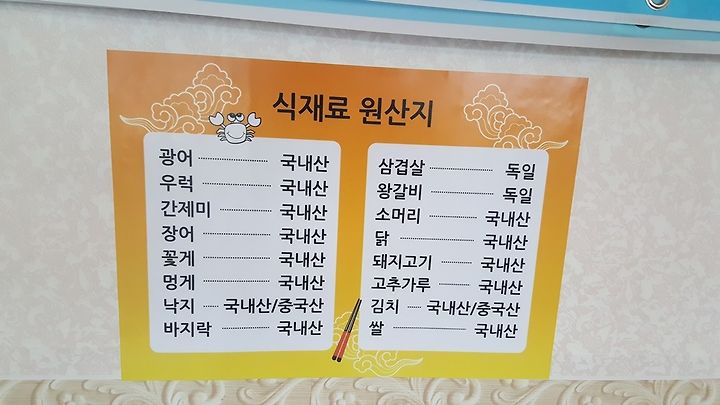 식재료 원산지
광어 ---------- 국내산
우럭 ---------- 국내산
간제미 ---------- 국내산
장어 ---------- 국내산
꽃게 ---------- 국내산
멍게 ---------- 국내산
낙지 ----- 국내산/중국산
바지락 ---------- 국내산
삼겹살 ---------- 독일
왕갈비 ---------- 독일
소머리 ---------- 국내산
닭 ---------- 국내산
돼지고기 ------- 국내산
고추가루 ------- 국내산
김치 ---- 국내산/중국산
쌀 ---------- 국내산